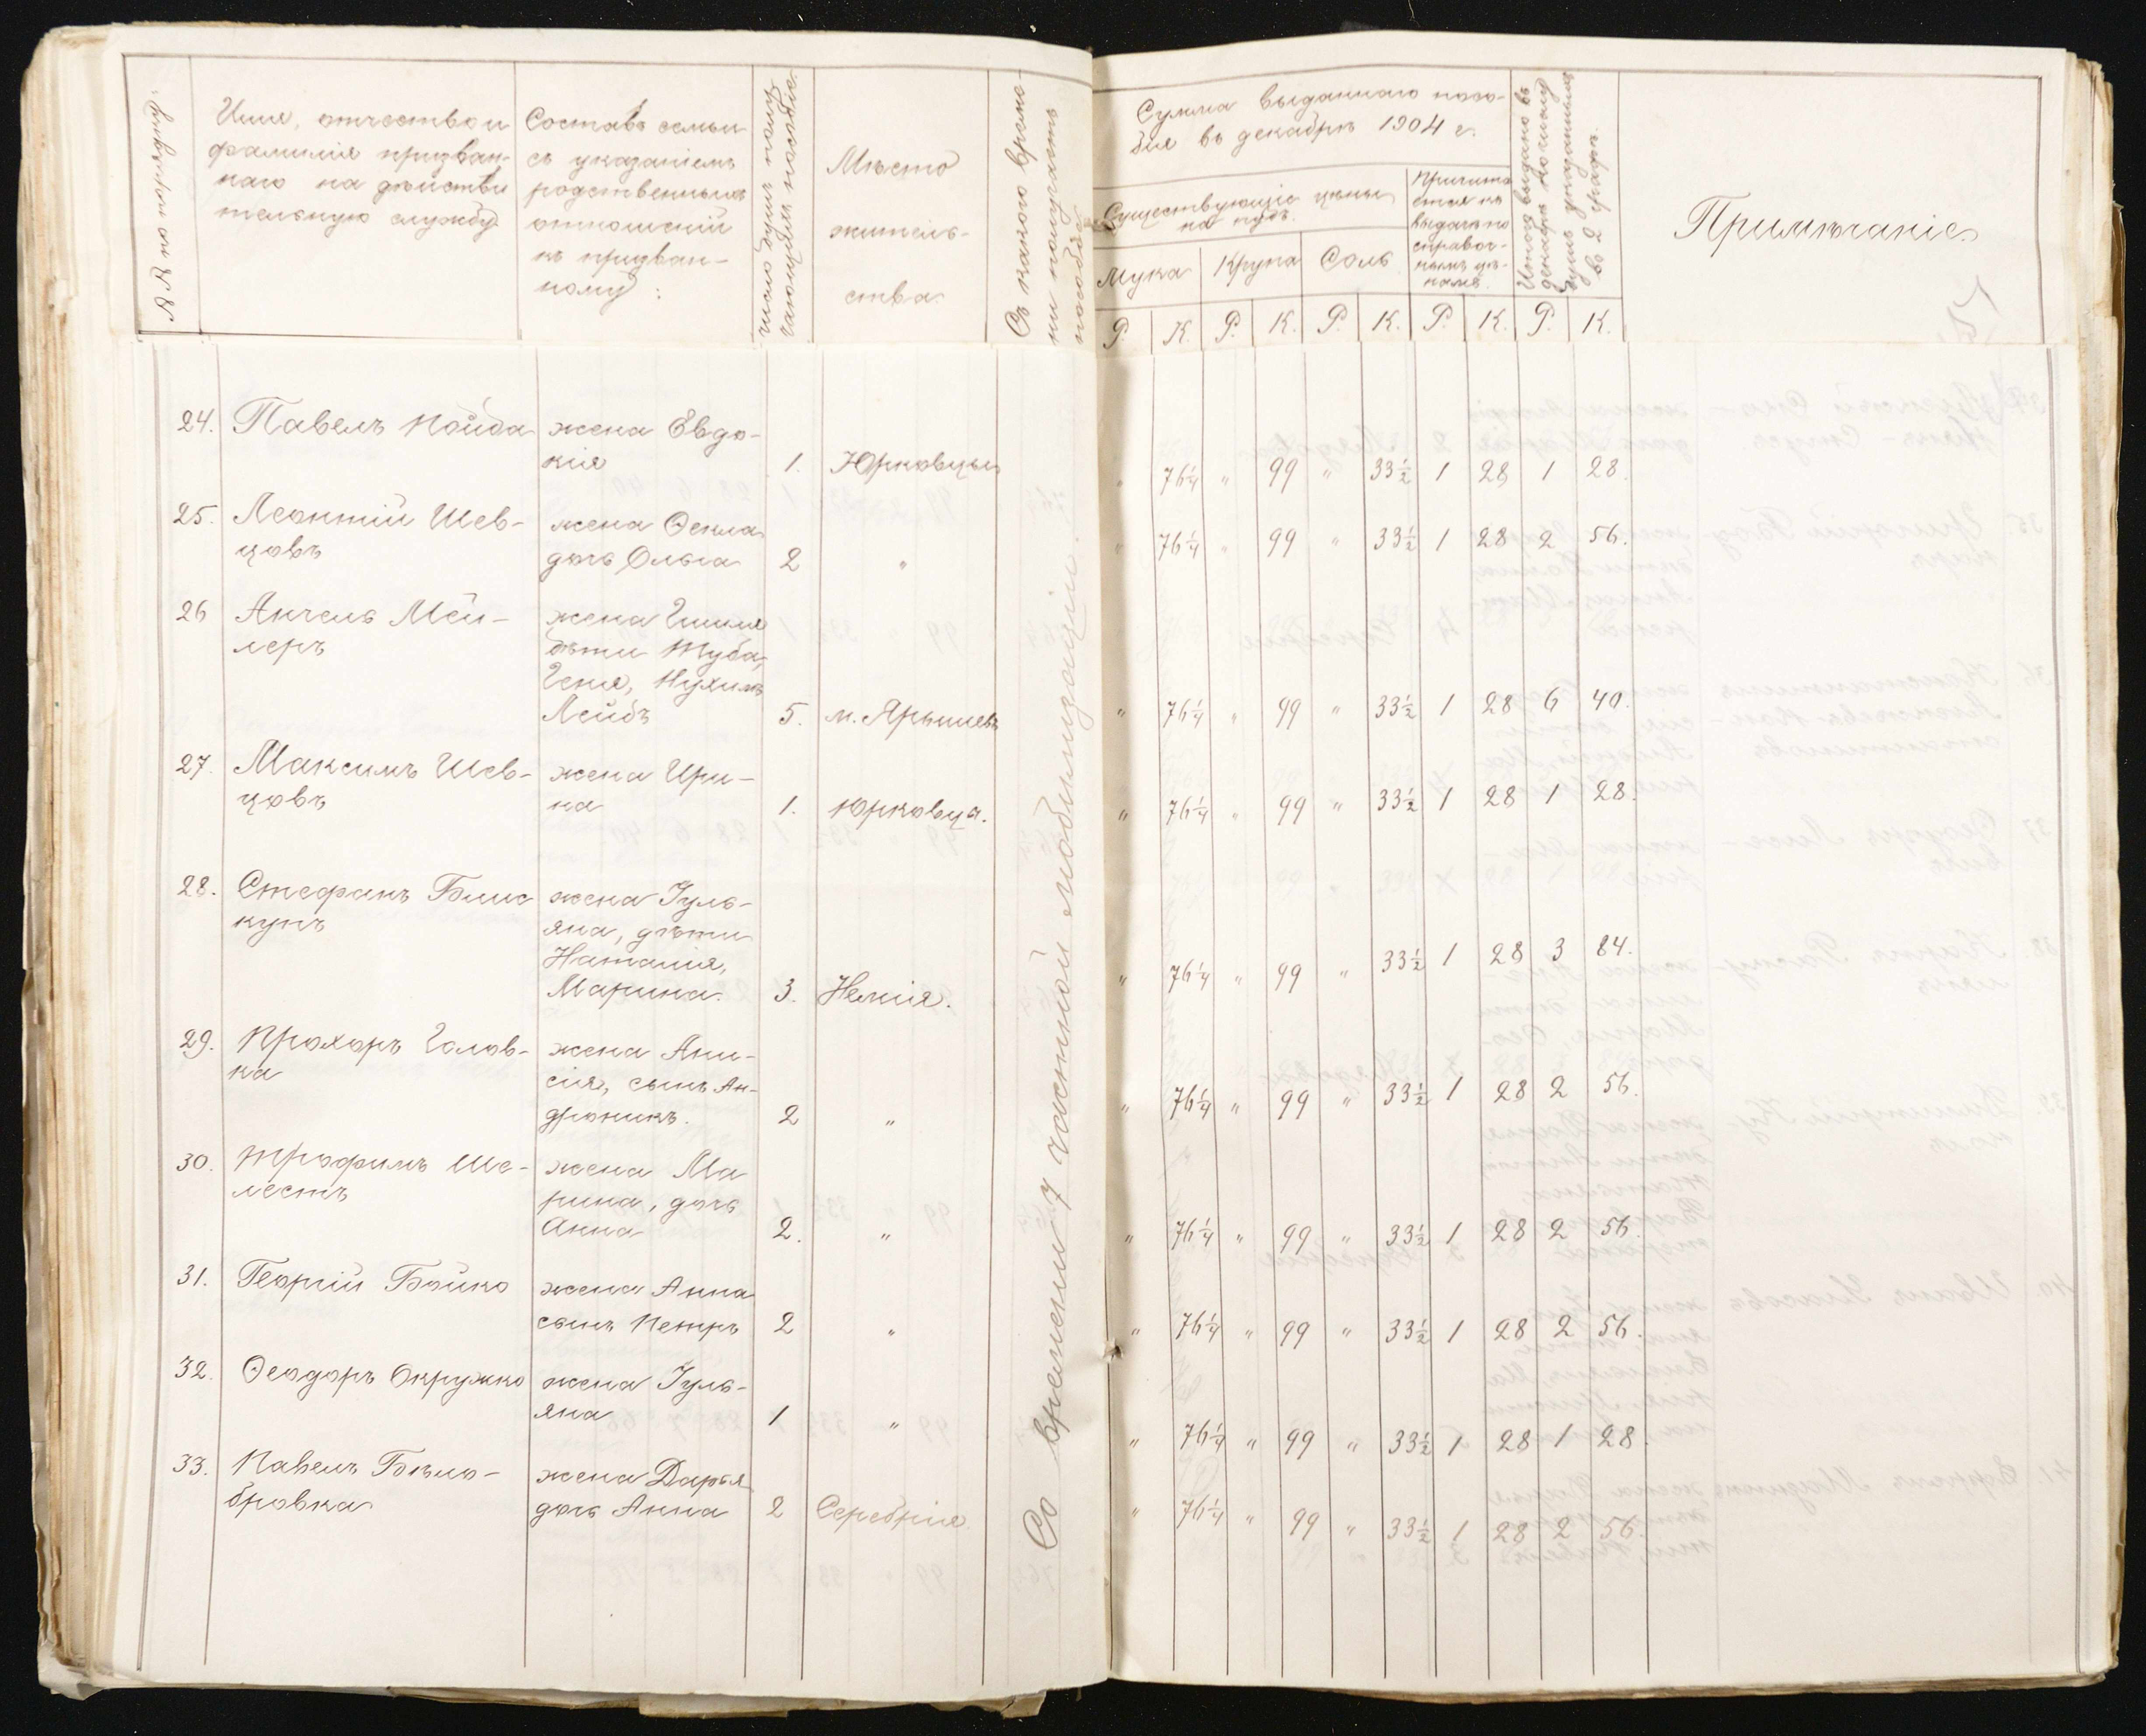 №№ по порядку.
Имя, отчество и
фамилія призван-
наго на действи
тельную службу.
Составъ семьи
съ указаніемъ
родственныхъ
отношеній
къ призван-
ному:
число душъ полу-
чающихъ пособіе.
Мѣсто
житель-
ства.
Съ какого време-
ни получаетъ
пособіе
Сумма выданнаго посо-
бія въ декабрѣ 1904 г.
Существующіе цѣны
на пудъ.
Мука Крупа Соль
Причита
ется къ
выдачѣ по
справоч-
нымъ цѣ-
намъ.
Итого выдано въ
декабрѣ по числу
душъ указанныхъ
въ 2 графѣ.
Примѣчаніе
Р. К. Р. К. Р. К. Р. К. Р. К.
24. Павелъ Нойда жена Евдо-
кія 1. Юрковцы " 76¼ " 99 " 33½ 1 28 1 28.
25. Леонтій Шев- жена Ѳекла
цовъ дочь Ольга 2 " " 76¼ " 99 " 33½ 1 28 2 56.
26 Анчель Мей- жена Гитля
леръ дѣти Туба,
Геня, Нухимъ
Лейбъ 5. м. Ярышевъ " 76¼ " 99 " 33½ 1 28 6 40.
27. Максимъ Шев- жена Ири-
цовъ на 1. Юрковца. " 76¼ " 99 " 33½ 1 28 1 28.
28. Стефанъ Блис жена Іуль-
кунъ яна, дѣти
Наталія,
Марина. 3. Немія. " 76¼ " 99 " 33½ 1 28 3 84.
29. Прохоръ Голов- жена Ани-
ка сія, сынъ Ан-
дроникъ. 2 " " 76¼ " 99 " 33½ 1 28 2 56.
30. Трофимъ Ше- жена Ма
лестъ рина, дочь
Анна 2. " " 76¼ " 99 " 33½ 1 28 2 56.
31. Георгій Бойко жена Анна
сынъ Петръ 2 " " 76¼ " 99 " 33½ 1 28 2 56.
32. Ѳеодоръ Окружко жена Іуль-
яна 1 " " 76¼ " 99 " 33½ 1 28 1 28
33. Павелъ Бѣло- жена Дарья
бровка дочь Анна 2 Серебрія. " 76¼ " 99 " 33½ 1 28 2 56.
Со времени 7 частной мобилизаціи.